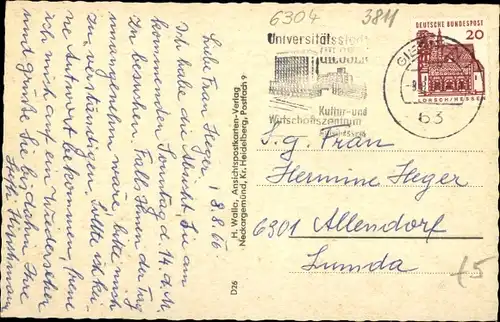 6304
3811
DEUTSCHE BUNDESPOST
20
LORSCH/HESSEN
Universitätsstadt
GIESSEN
Kultur- und
Wirtschaftszentrum
63
Liebe Frau Heger! 8.8.66.
Ich habe die Absicht, Sie am
kommenden Sonntag d. 14. d. M.
zu besuchen. Falls Ihnen der Tag
unangenehm wäre, bitte mich
zu verständigen, sollte ich kei-
ne Antwort bekommen, freue
ich mich auf ein Wiedersehen
und grüße Sie bis dahin Ihre
H. Walla, Ansichtspostkarten-Verlag
Neckargemünd, Kr. Heidelberg, Postfach 9
D26
S. g. Frau
Hermine Heger
6301 Allendorf
Lumda